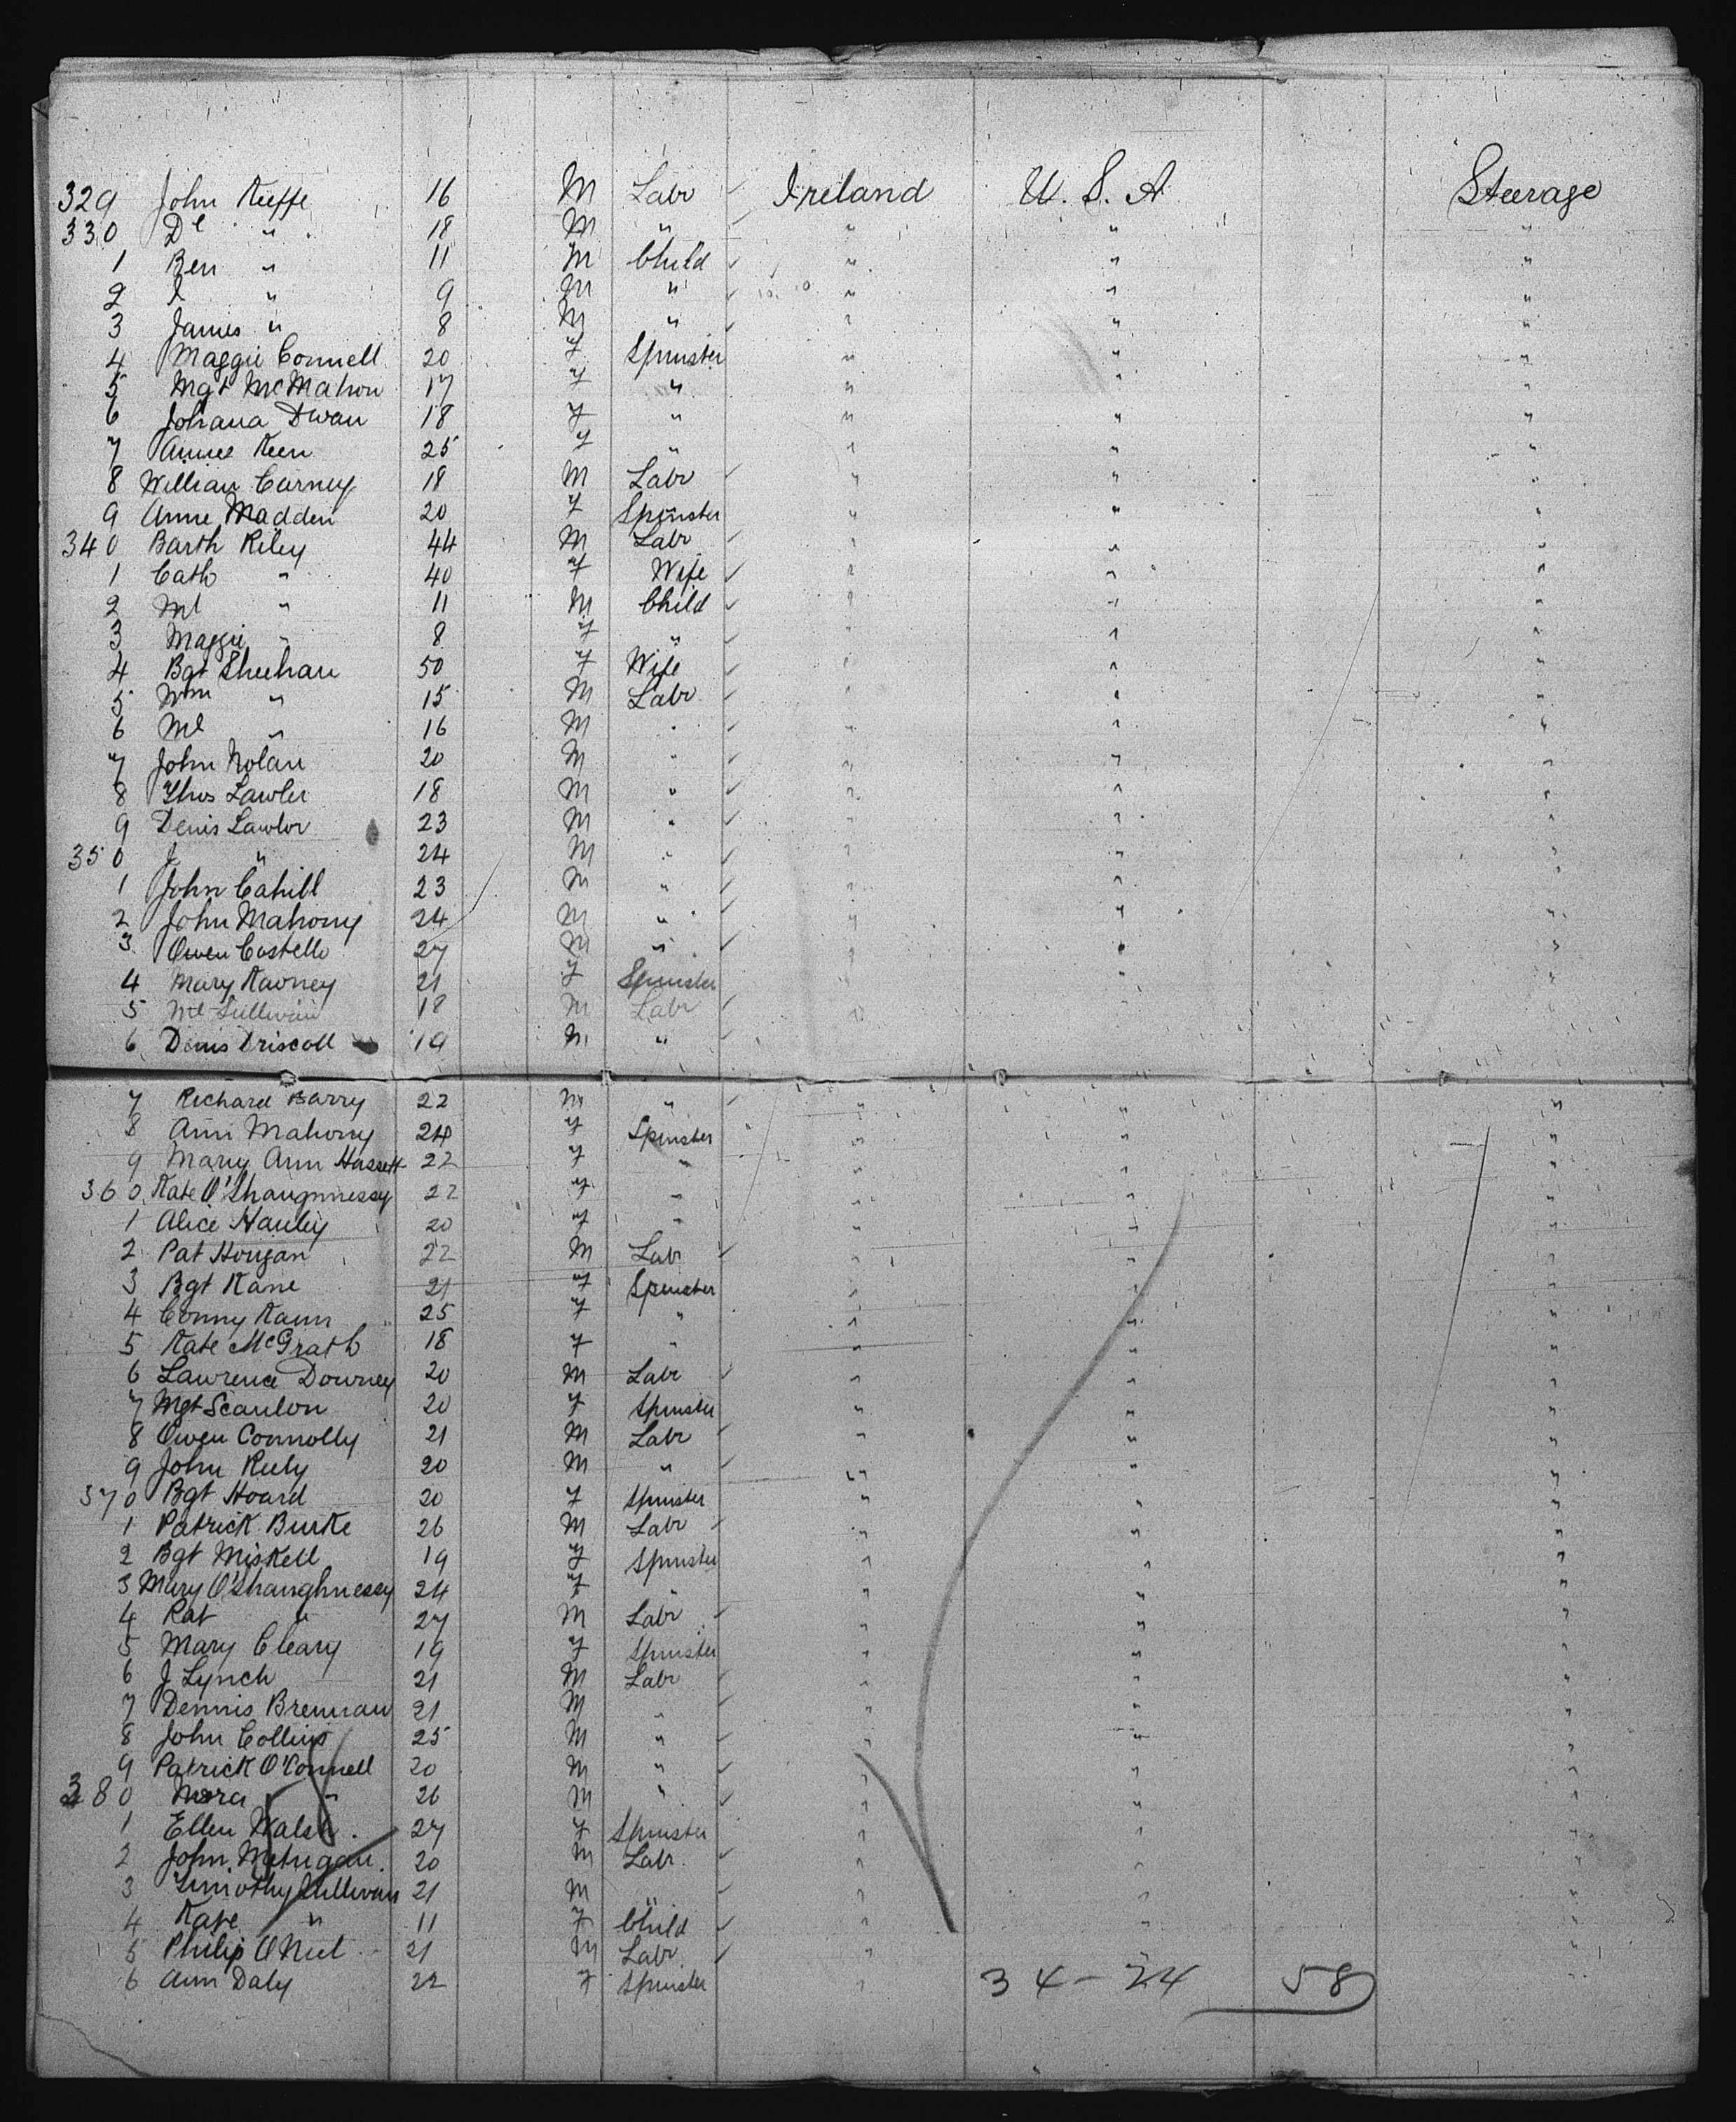 329 John Keeffe 16 M Labr Ireland U. S. A Steerage
330 Dl " 18 M " " " "
1 Ben " 11 M Child " " "
2 " 9 M " " " "
3 James " 8 M " " " "
4 Maggie Connell 20 F Spinster " " "
5 Mgt McMahon 17 F " " " "
6 Johana Dwan 18 F " " " "
7 Annie Keen 25 F " " " "
8 William Carney 18 M Labr " " "
9 Anne Madden 20 F Spinster " " "
340 Barth Riley 44 M Labr " " "
1 Cath " 40 F Wife " " "
2 Ml " 11 M Child " " "
3 Maggie " 8 F " " " "
4 Bgt Sheehan 50 F Wife " " "
5 Wm " 15 M Labr " " "
6 Ml " 16 M " " " "
7 John Nolan 20 M " " " "
8 Thos Lawler 18 M " " " "
9 Denis Lawlor 23 M " " " "
350 J " 24 M " " " "
1 John Cahill 23 M " " " "
2 John Mahony 24 M " " " "
3 Owen Costello 27 M " " " "
4 Mary 21 F Spinster " " "
5 Ml Sullivan 18 M Labr " " "
6 Denis Driscoll 19 M " " " "
7 Richard Barry 22 M " " " "
8 Ann Mahony 24 F Spinster " " "
9 Mary Ann Hassett 22 F " " " "
360 Kate O'Shaugnnessy 22 F " " " "
1 Alice Hanley 20 F " " " "
2 Pat Hourgan 22 M Labr " " "
3 Bgt Kane 21 F Spinster " " "
4 Conny Kann 25 F " " " "
5 Kate McGrath 18 F " " " "
6 Lawrence Downey 20 M Labr " " "
7 Mgt Scanlon 20 F Spinster " " "
8 Owen Connolly 21 M Labr " " "
9 John Reely 20 M " " " "
370 Bgt Hoard 20 F Spinster " " "
1 Patrick Burke 26 M Labr " " "
2 Bgt Miskell 19 F Spinster " " "
3 Mary O'Shaughnessy 24 F " " " "
4 Pat " 27 M Labr " " "
5 Mary Cleary 19 F Spinster " " "
6 J Lynch 21 M Labr " " "
7 Dennis Brennan 21 M " " " "
8 John Collins 25 M " " " "
9 Patrick O'Connell 20 M " " " "
380 Nora " 26 M " " " "
1 Ellen Walsh 27 F Spinster " " "
2 John Metugan 20 M Labr " " "
3 Timothy Sullivan 21 M " " " "
4 Kate " 11 F Child " " "
5 Philip O Neil 21 M Labr " " "
6 Ann Daly 22 F Spinster "
34 - 24 58